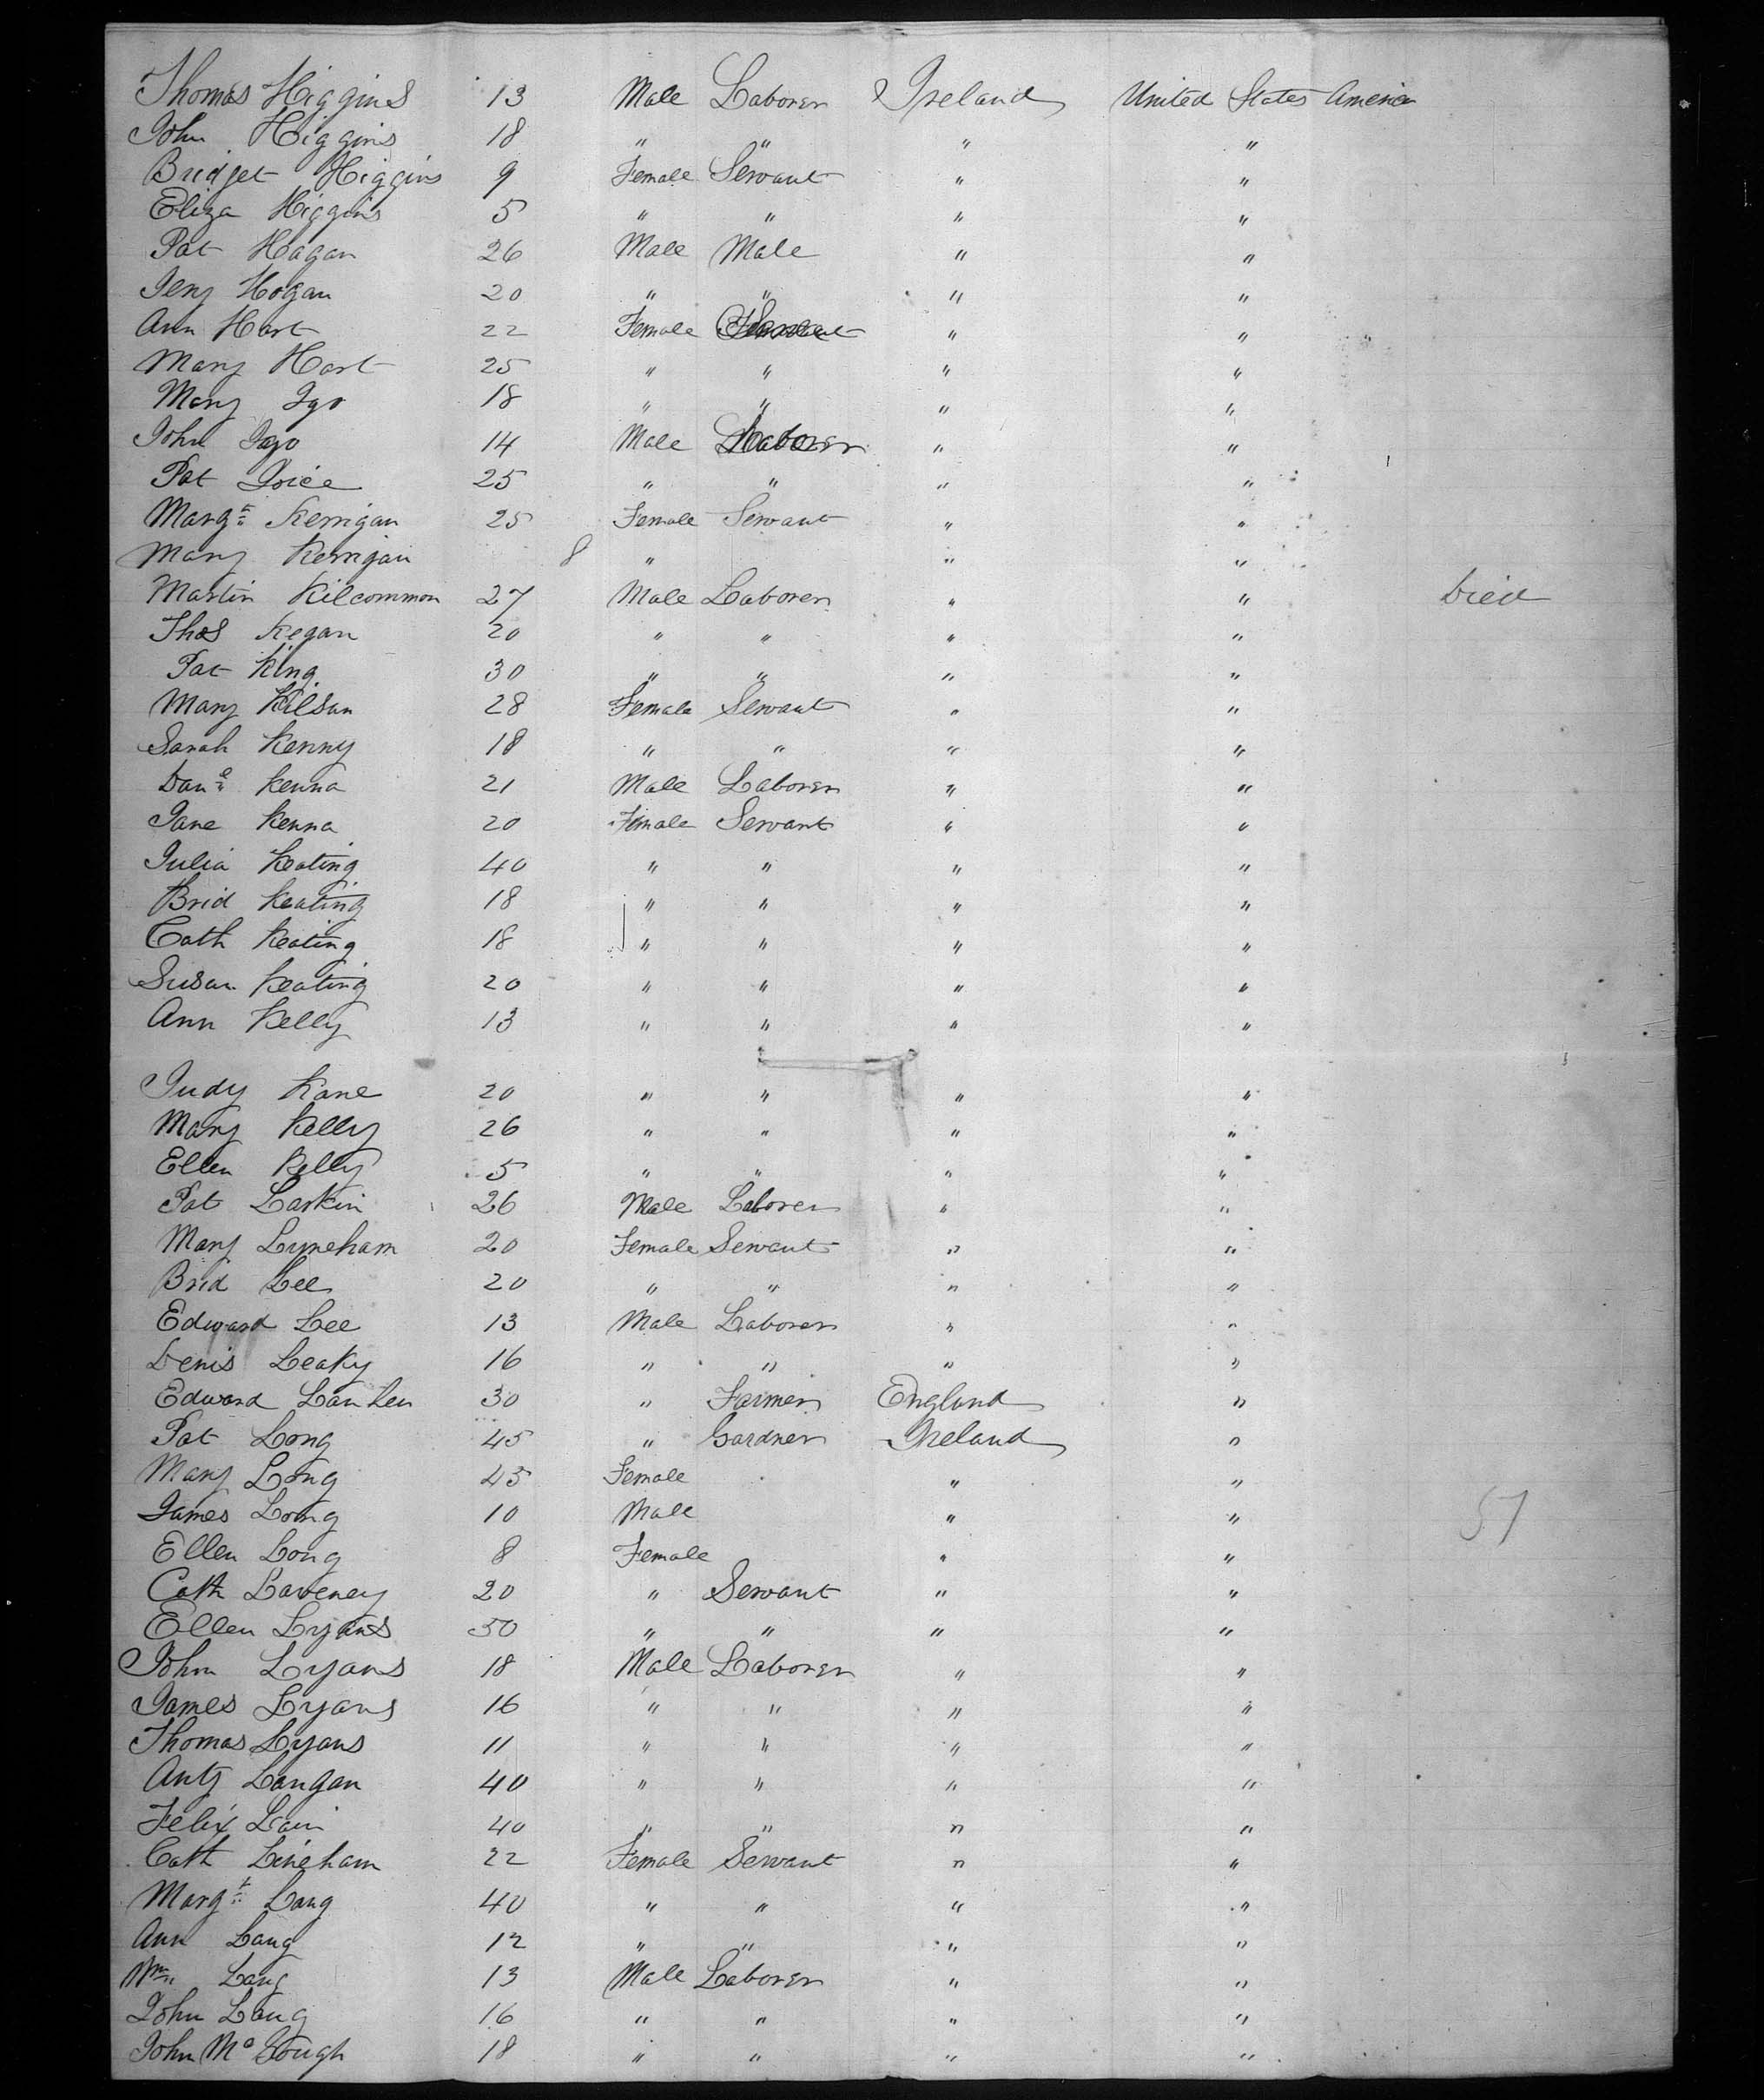 Thomas Higgins 13 Male Laborer Ireland United States America
John Higgins 18 " " " "
Bridget Higgins 9 Female Servant " "
Eliza Higgins 5 " " " "
Pat Hagan 26 Male Male " "
Jeny Hogan 20 " " " "
Ann Hart 22 Female " "
Mary Hart 25 " " " "
Mary Igo 18 " " " "
John Igo 14 Male Laborer " "
Pat Joice 25 " " " "
Margt Kerrigan 25 Female Servant " "
Mary Kerrigan 8 " " "
Martin Kilcommon 27 Male Laborer " " Died
Thos Kegan 20 " " " "
Pat King 30 " " " "
Mary Kilsun 28 Female Servant " "
Sarah Kenny 18 " " " "
Danl Kenna 21 Male Laborer " "
Jane Kenna 20 Female Servant " "
Julia Keating 40 " " " "
Brid Keating 18 " " " "
Cath Keating 18 " " " "
Susan Keating 20 " " " "
Ann Kelly 13 " " " "
Judy Kane 20 " " " "
Mary Kelly 26 " " " "
Ellen Kelly 5 " " " "
Pat Larkin 26 Male Laborer " "
Mary Lyneham 20 Female Servant " "
Brid Lee 20 " " " "
Edward Lee 13 Male Laborer " "
Denis Leaky 16 " " " "
Edward 30 " Farmer England "
Pat Long 45 " Gardner Ireland "
Mary Long 45 Female " "
James Long 10 Male " "
57
Ellen Long 8 Female " "
Cath Laveney 20 " Servant " "
Ellen Lyans 50 " " " "
John Lyans 18 Male Laborer " "
James Lyans 16 " " " "
Thomas Lyans 11 " " " "
Anty Langan 40 " " " "
Felix Lain 40 " " " "
Cath Lineham 22 Female Servant " "
Margt Lang 40 " " " "
Ann Lang 12 " " " "
Wm Lang 13 Male Laborer " "
John Lang 16 " " " "
John McGough 18 " " " "